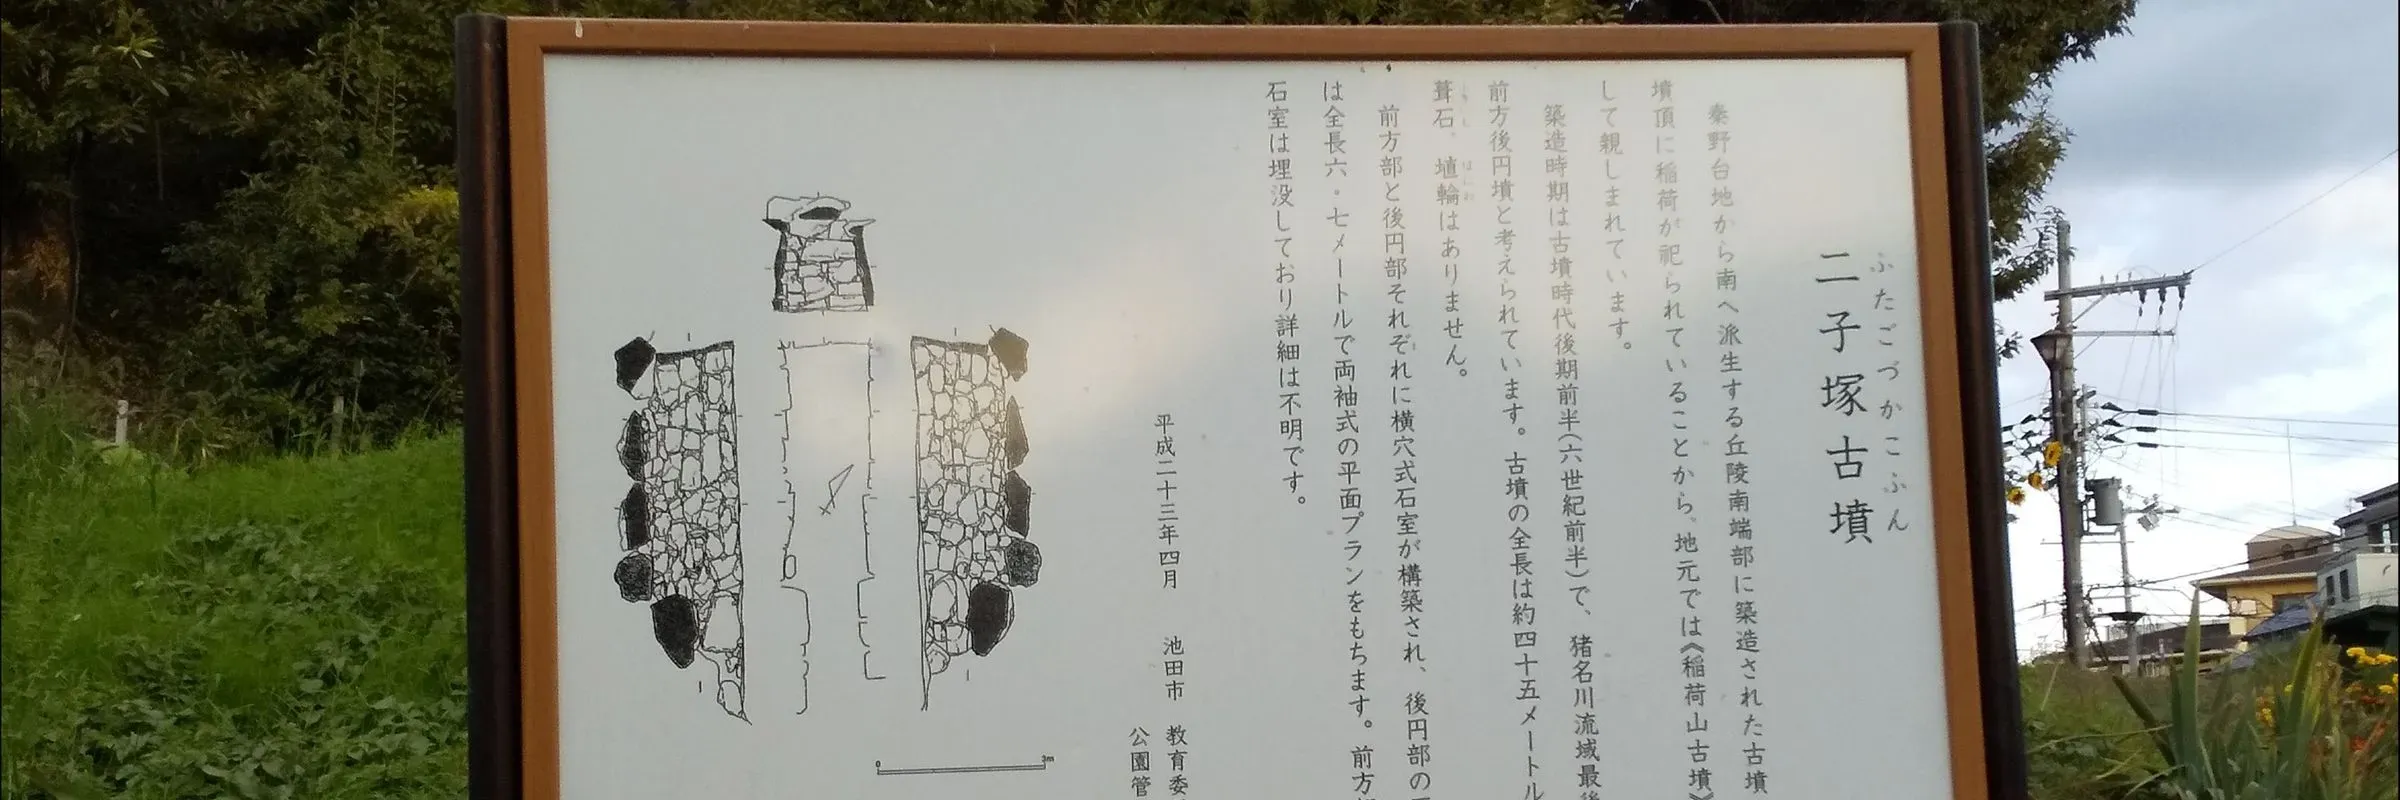 ふたごづかこふん
二子塚古墳
秦野台地から南へ派生する丘陵南端部に築造された古墳
墳頂に稲荷が祀られていることから、地元では《稲荷山古墳》
して親しまれています。
築造時期は古墳時代後期前半(六世紀前半)で、猪名川流域最後
前方後円墳と考えられています。古墳の全長は約四十五メートル
ふきいし はにわ
葺石、埴輪はありません。
前方部と後円部それぞれに横穴式石室が構築され、後円部の
は全長六・七メートルで両袖式の平面プランをもちます。前方
石室は埋没しており詳細は不明です。
平成二十三年四月 池田市 教育委
公園管
0 3m